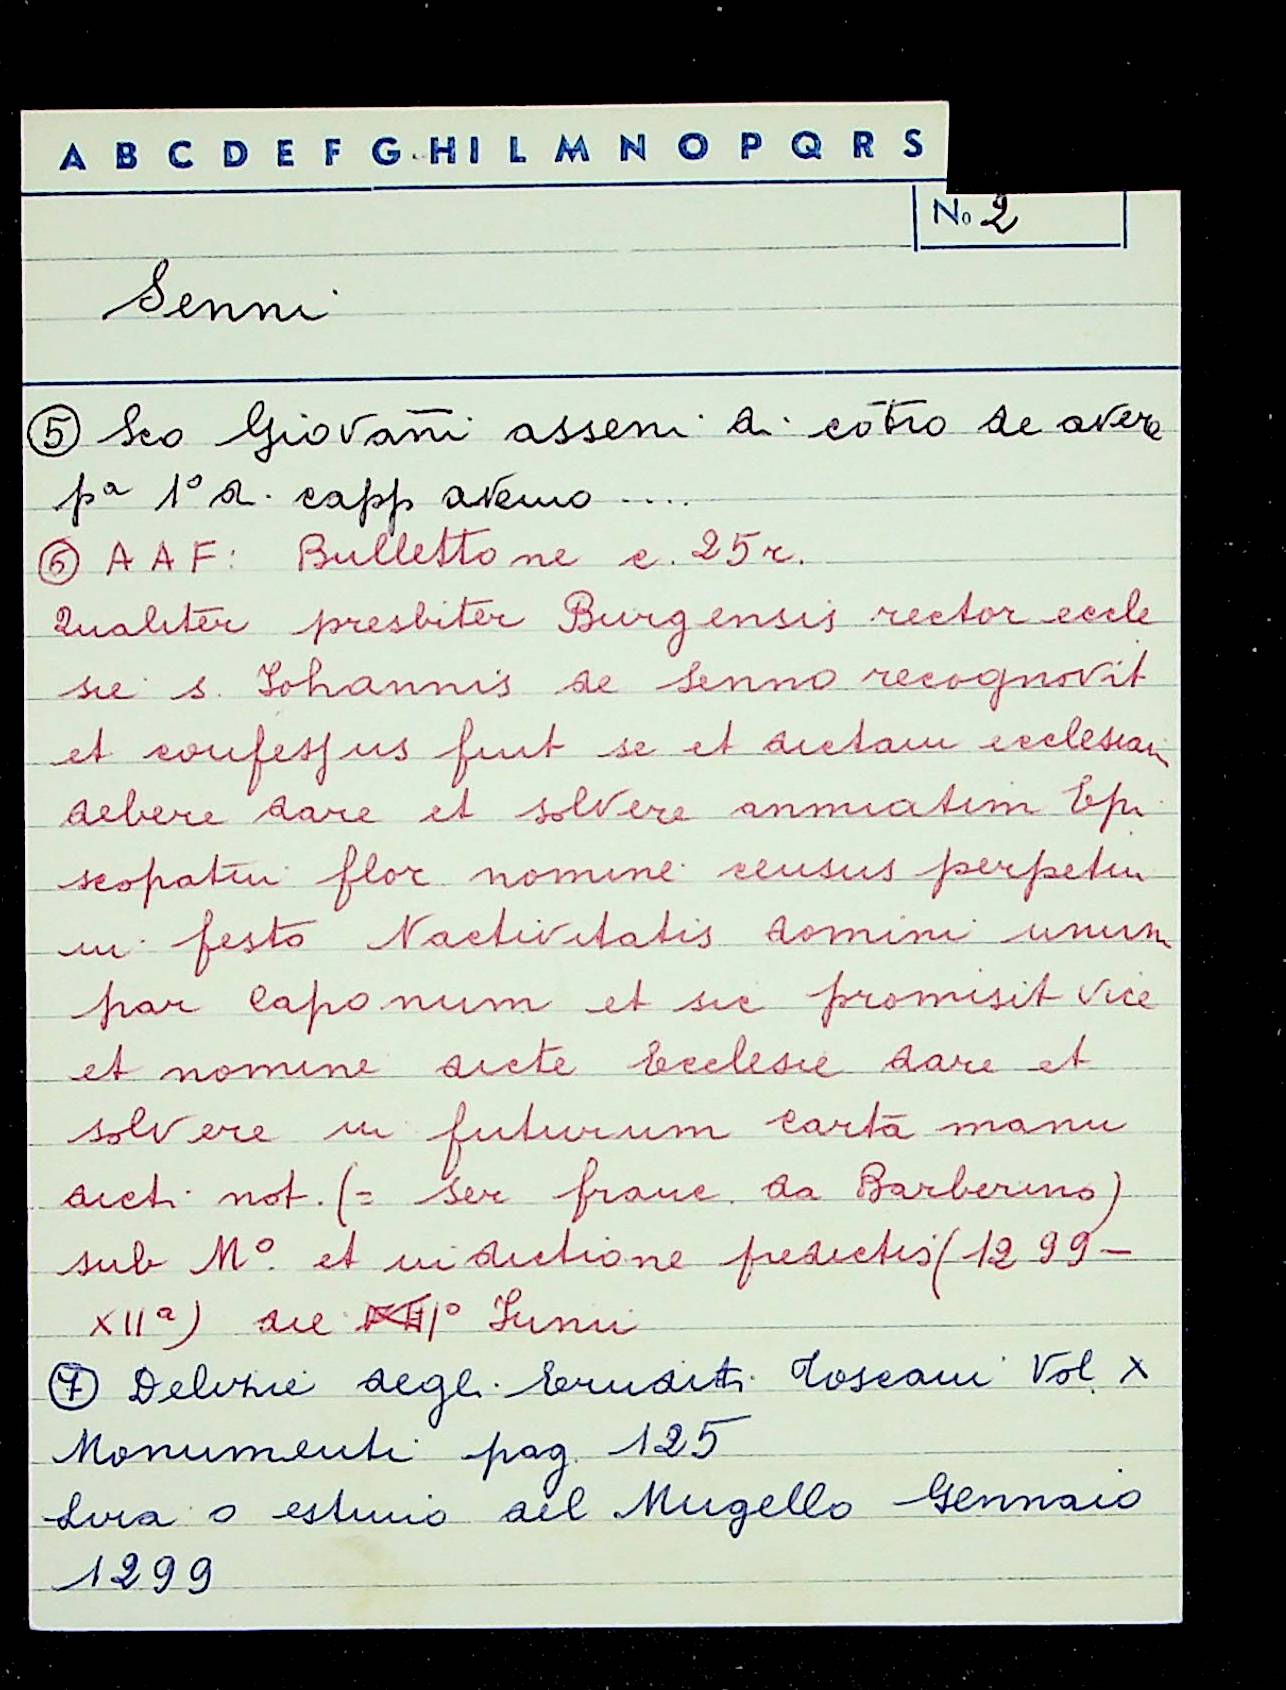 A B C D E F G H I L M N O P Q R S
No 2
Senni
⑤ Sco Giovañi asseni di cōtro de avere
pa 1° d. capp avemo ....
⑥ A A F: Bullettone c. 25 r.
Qualiter presbiter Burgensis rector eccle
sie s. Johannis de Senno recognovit
et confessus fuit se et dictam ecclesiam
debere dare et solvere annuatim Epi
scopatui flor nomine census perpetui
in festo Nactivitatis domini unum
par Caponum et sic promisit vice
et nomine dicte Ecclesie dare et
solvere in futurum cartā manu
dicti not. (= ser franc. da Barberino)
sub M° et indictione predictis (1299-
XIIa) die I° Junii
⑦ Delizie degli Eruditi Toscani Vol. X
Monumenti pag. 125
Lira o estimo del Mugello Gennaio
1299